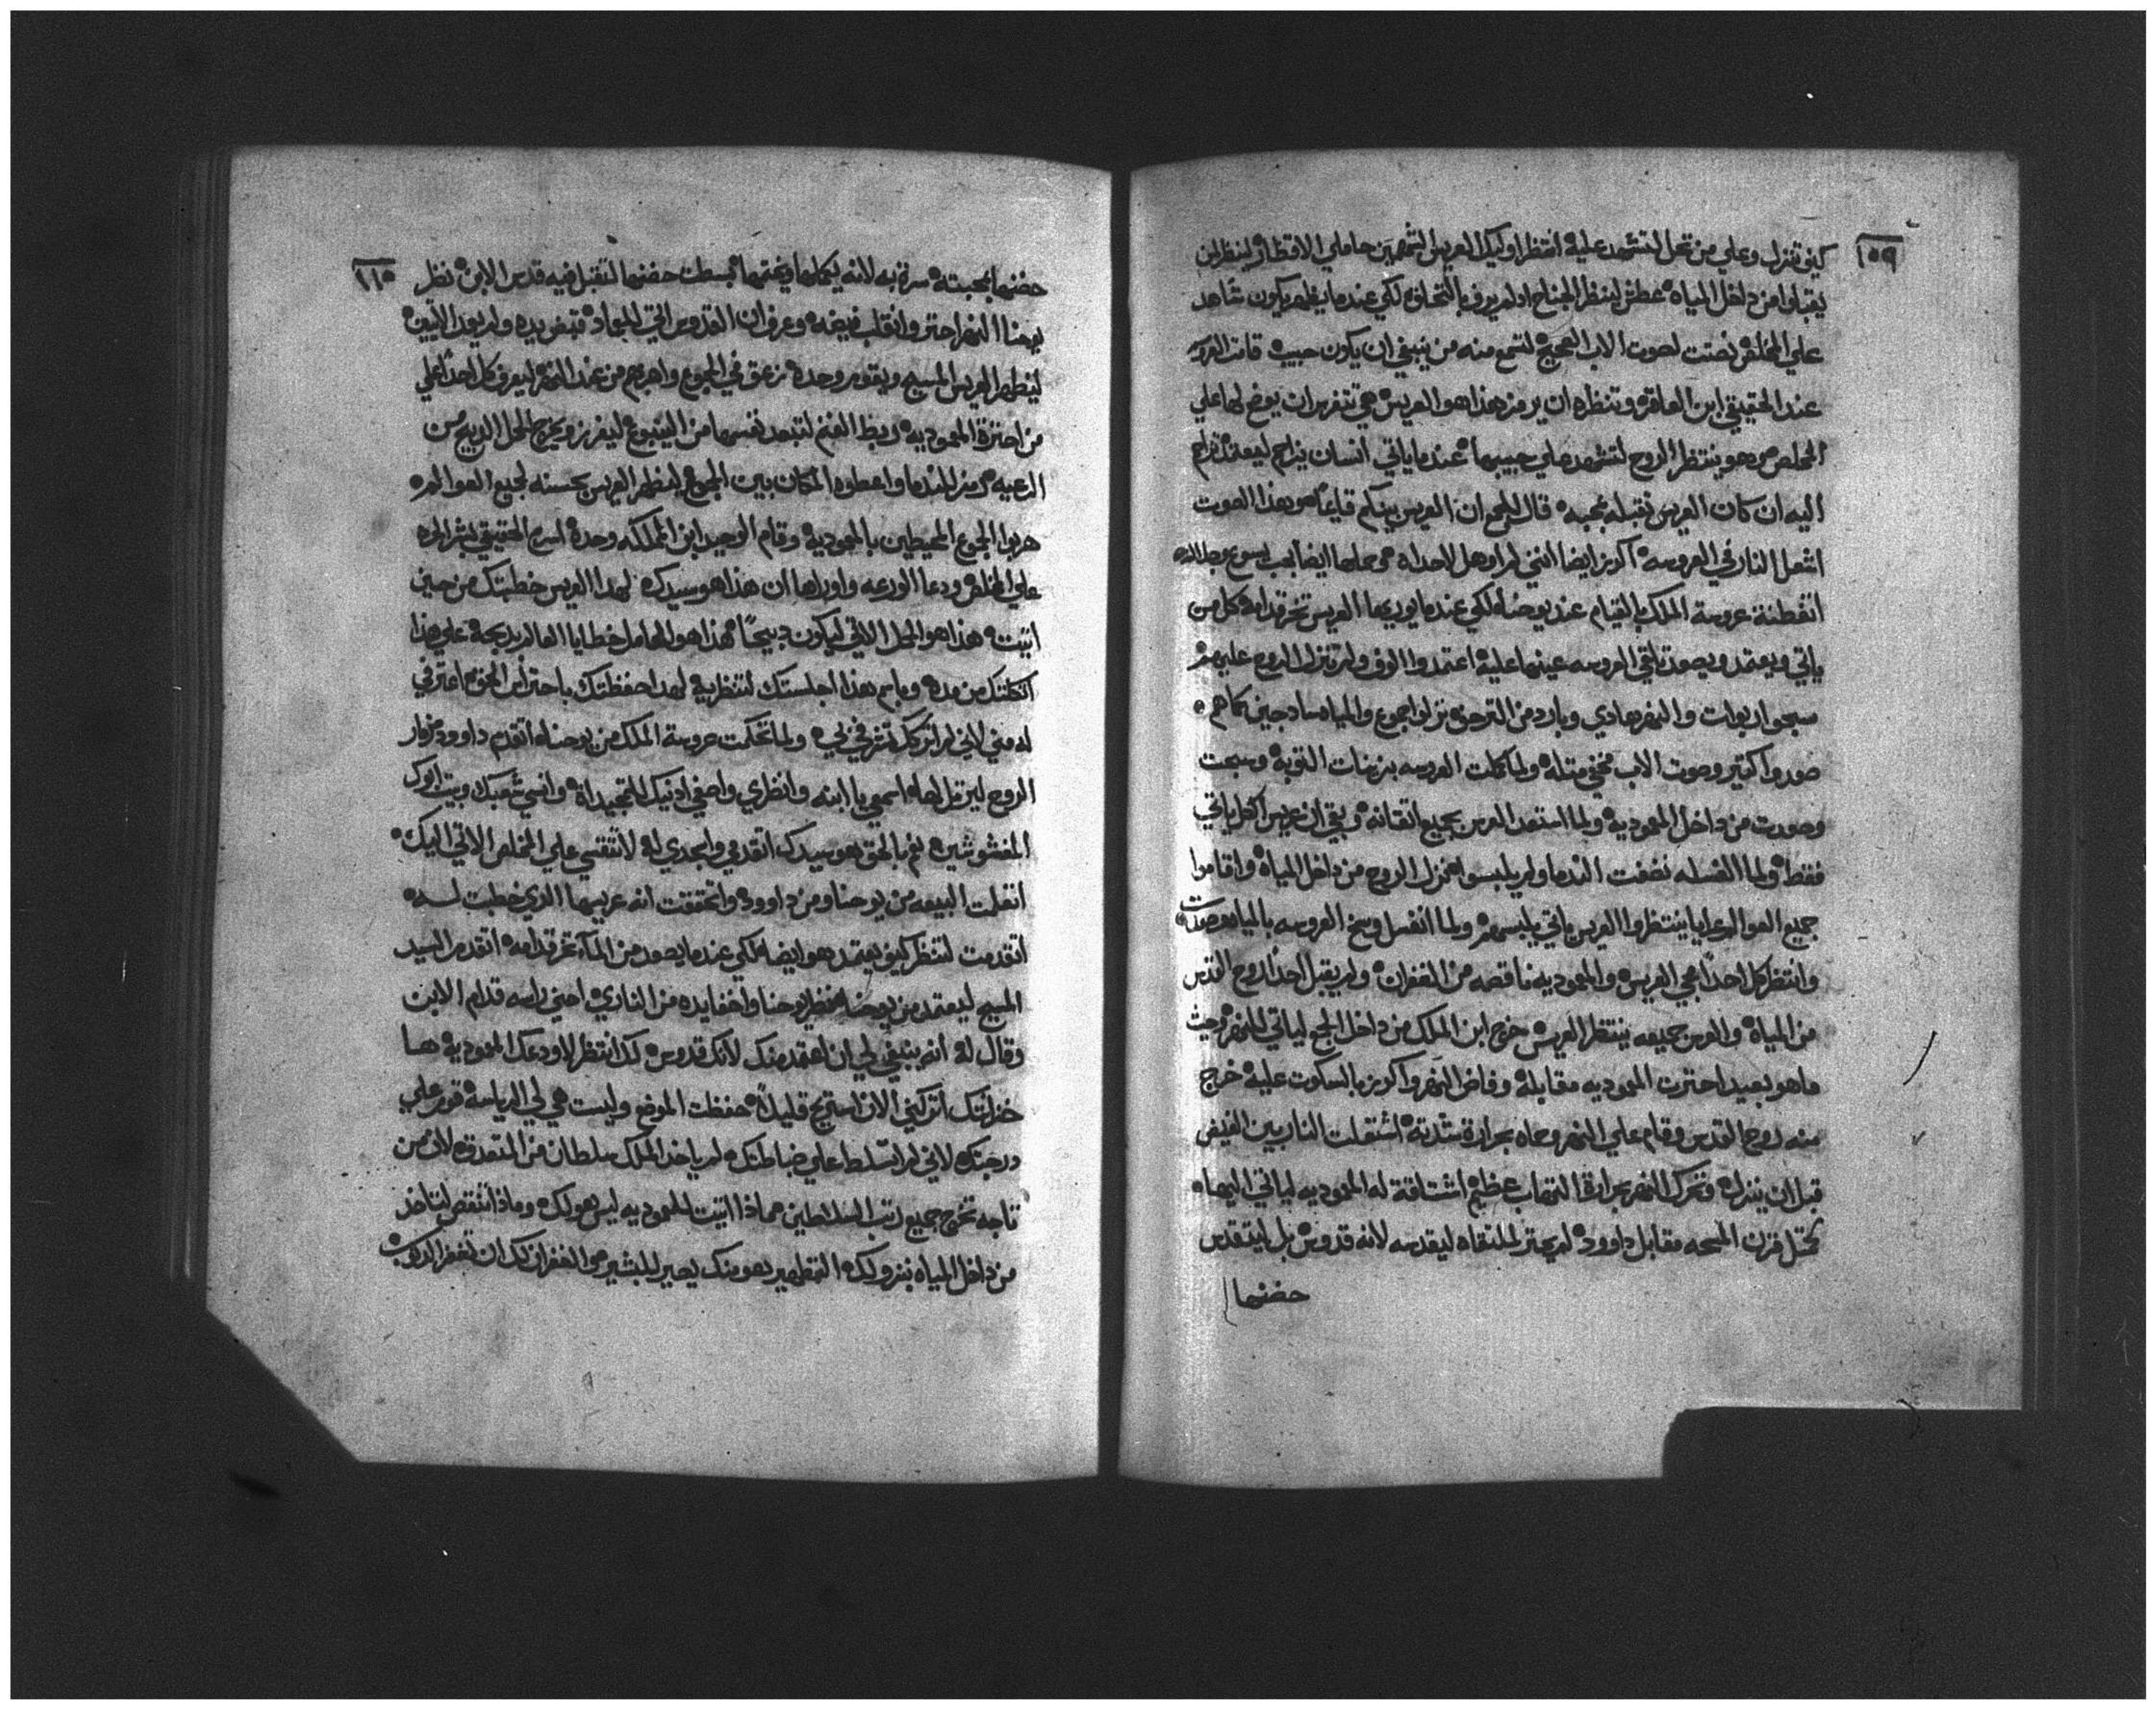 ١٥٩
كيف تنزل وعلي من تحل لتشهد عليه انتظر اوليك العريس الشهيين حاملي الاقطار لينظر اين
يقبلوا من داخل المياه عطش لينظر الجناح اد لم يرفرف بالتحليق لكي عندما يظهر يكون شاهد
علي المخلص نصتت لصوت الاب العجيب لتسمع منه من ينبغي ان يكون حبيبه قامت
عند الحقيقي ابن العاقره وتنظره ان يرمز هذا هو العريس هي تتفرس ان يوضح لها علي
المخلص وهو ينتظر الروح لتشهد علي حبيبها عندما ياتي انسان يزاحم ليعتمد تزاحم
اليه ان كان العريس تقبله بمحبه قال للجمع ان العريس بينكم قايمًا هو بهذا الصوت
اشعل النار في العروسه اكرز ايضا انني لم اوهل لاحداه هي حلها ايضا بحب يسوع
اتفطنة عروسة الملك بالقيام عند يوحنا لكي عندما يوريها العريس تخر قدامه كل من
ياتي ويعتمد ويصعد تلقي العروسه عينها عليه اعتمدوا الوف ولم تنزل الروح عليهم
سبحوا ربوات والنهر هادي وبارد من التوحز نزلوا جموع والمياه سادجين كما هم
صعدوا كتير وصوت الاب مخفي متله ولما كملت العروسه بزينات التوبه وسبحت
وصعدت من داخل المعموديه ولما استعد العرس بجميع اتقانه وبقي ان عريس الكل ياتي
فقط ولما الغسله نضفت الندما ولم يلبسوا منزل الروح من داخل المياه واقاموا
جميع العوالم عرايا ينتظروا العريس ياتي يلبسهم ولما انغسل وسخ العروسه بالمياه وصعدت
وانتظر كل احدا مجي العريس والمعموديه ناقصه من الغفران ولم يقبل احدا روح القدس
من المياه والعرس جميعه ينتظر العريس خرج ابن الملك من داخل الجمع لياتي للنهر وحيث
ما هو بعيد احترت المعموديه مقابله وفاض النهر واكرز بالسكوت عليه خرج
منه روح القدس وقام علي النهر وحماه بحرارة شدته اشتعلت النار بين الفيض
قبل ان ينزل وتحرك النهر بحرارة التهاب عظيم اشتاقة له المعموديه لياتي اليها
كمثل قرن المسحه مقابل داوود لم يحتر للتقاه ليقدسه لانه قدوس بل ليتقدس
حضنها
١١٥
حضنها بمحبته سرة به لانه يكملها ويختمها بسطت حضنها لتقبل فيه قدس الابن نظر
يوحنا النهر احتر وانقلب فيضه وعرف ان القدوس اتي للعماد قبض يده ولم يعمد الاتيين
ليظهر العريس المسيح ويقوم وحده زعق في الجموع واهربهم من عند النهر ليعرف كل احدا علي
من احترة المعموديه ربط الغنم لتبعد نفسها من الينبوع ليفرز ويخرج الحمل الدبيح من
الرعيه رمز للندما واعطوه المكان بين الجمع ليظهر العريس بحسنه لجميع العوالم
هربوا الجموع المحيطين بالمعموديه وقام الوحيد ابن المملكه وحده اسرع الحقيقي بشر الحره
علي المخلص ودعا الورعه واوراها ان هذا هو سيدك لهدا العريس خطبتك من حين
اتيت هذا هو الحمل الاتي ليكون دبيحًا هذا هو الحامل خطايا العالم بدبحه علي هذا
اتكلتك من مده وباسم هذا اجلستك لتنتظريه لهدا حفظتك باحتراس الحق اعترفي
له مني لاني لم اتركك تشرفي بي ولما تحكمت عروسة الملك من يوحنا اتقدم داوود مزمار
الروح ليرتل لها اسمعي يا ابنه وانظري واصغي ادنيك للتمجيداة وانسي شعبك وبيت ابوك
المغشوشين نعم بالحق هو سيدك اتقدمي واسجدي له لا تنقسي علي المخلص الاتي اليك
انقلت البيعه من يوحنا ومن داوود واتحققت انه عريسها الدي خطبت لـه
اتقدمت لتنظر كيف يعتمد هو ايضا لكي عندما يصعد من الماء تخر قدامه اتقدم السيد
المسيح ليعتمد من يوحنا نظر يوحنا واخفا يده من الناري احني راسه قدام الابن
وقال له انه ينبغي لي ان اعتمد منك لانك قدوس كدا انتظر لاودعك المعموديه هـا
خزانتك اتركني الان استريح قليلاً حفظت الموضع وليست هي لي الرياسه قوم علي
درجتك لاني لم اتسلط علي ضباطتك لم ياخد الملك سلطان من المتصدق لان من
تاجه تخرج جميع رتب السلاطين مماذا اتيت للمعموديه ليس هو لك وماذا تنقص لتاخد
من داخل المياه بنزولك التطهير هو منك يصير للبشر هو الغفران لك ان تغفر الدنوب